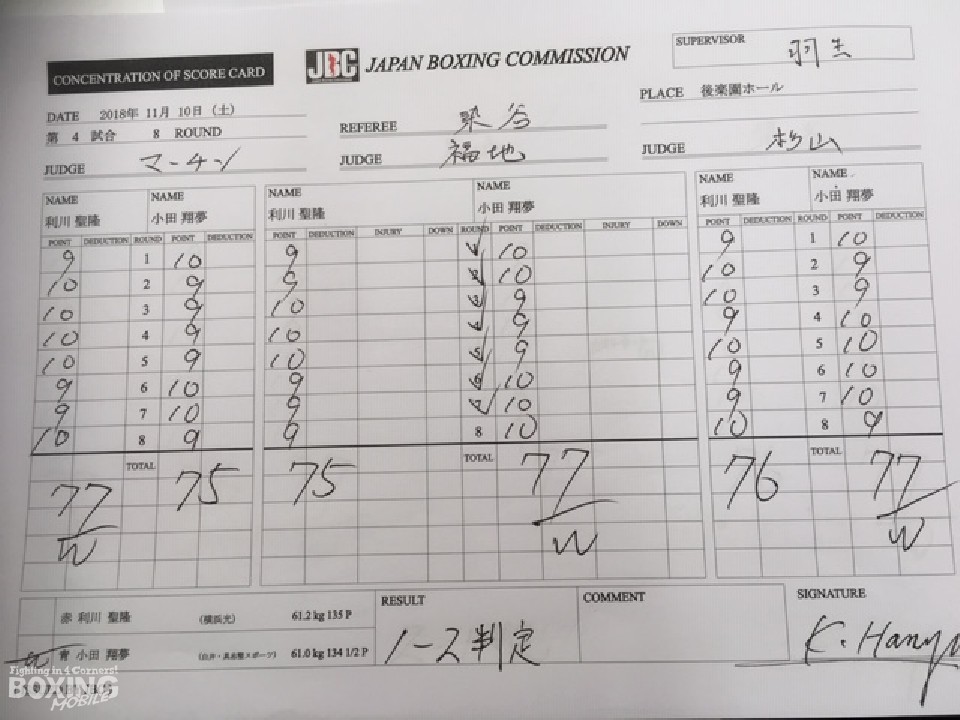 CONCENTRATION OF SCORE CARD
JBC JAPAN BOXING COMMISSION
SUPERVISOR 羽生
DATE 2018年 11月 10日 (土)
PLACE 後楽園ホール
第 4 試合 8 ROUND
REFEREE 染谷
JUDGE マーチン
JUDGE 福地
JUDGE 杉山
NAME NAME NAME NAME NAME NAME
利川 聖隆 小田 翔夢 利川 聖隆 小田 翔夢 利川 聖隆 小田 翔夢
POINT DEDUCTION ROUND POINT DEDUCTION POINT DEDUCTION INJURY DOWN ROUND POINT DEDUCTION INJURY DOWN POINT DEDUCTION ROUND POINT DEDUCTION
9 1 10 9 10 9 1 10
10 2 9 9 10 10 2 9
10 3 9 10 9 10 3 9
10 4 9 10 9 9 4 10
10 5 9 10 9 10 5 10
9 6 10 9 10 9 6 10
9 7 10 9 10 9 7 10
10 8 9 9 8 10 10 8 9
TOTAL TOTAL TOTAL
77 75 75 77 76 77
W W W
赤 利川 聖隆 (横浜光) 61.2 kg 135 P
青 小田 翔夢 (白井・具志堅スポーツ) 61.0 kg 134 1/2 P
RESULT
2判定
COMMENT
SIGNATURE
K. Hanyu
Fighting in 4 Corners!
BOXING
MOBILE